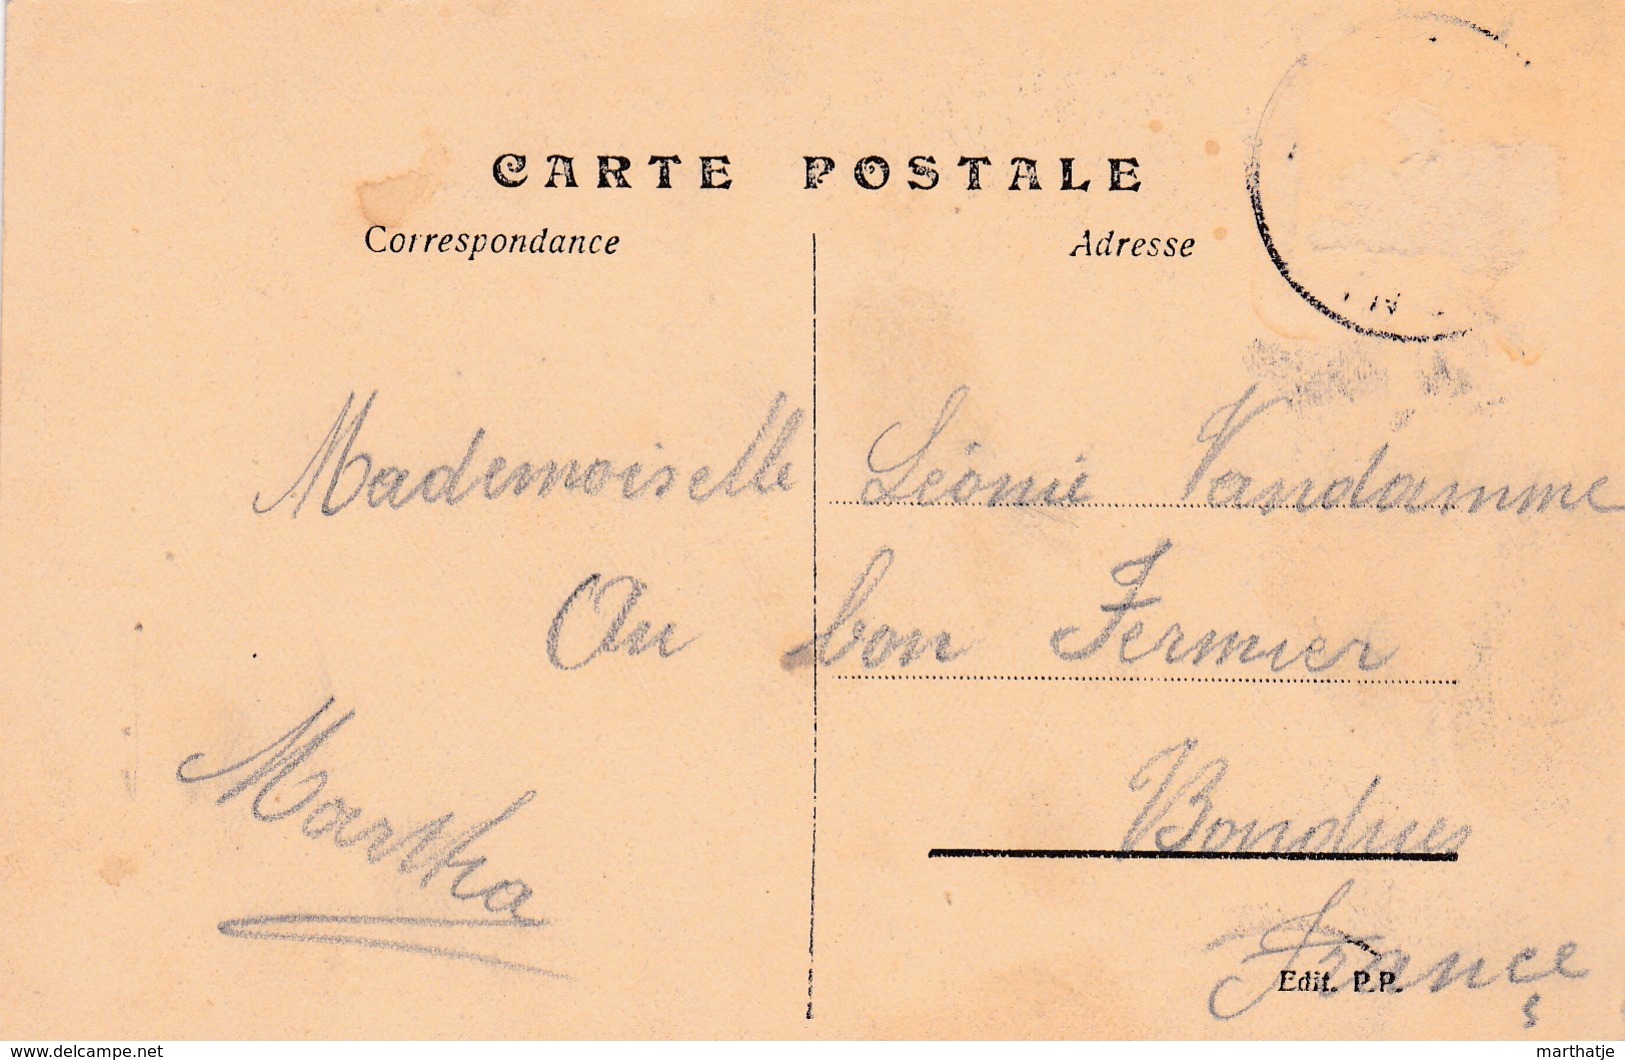 CARTE POSTALE
Correspondance
Adresse
Mademoiselle Léonie Vandamme
Au bon Fermier
Martha
Bondues
France
Edit. P.P.
www.delcampe.net
marthatje